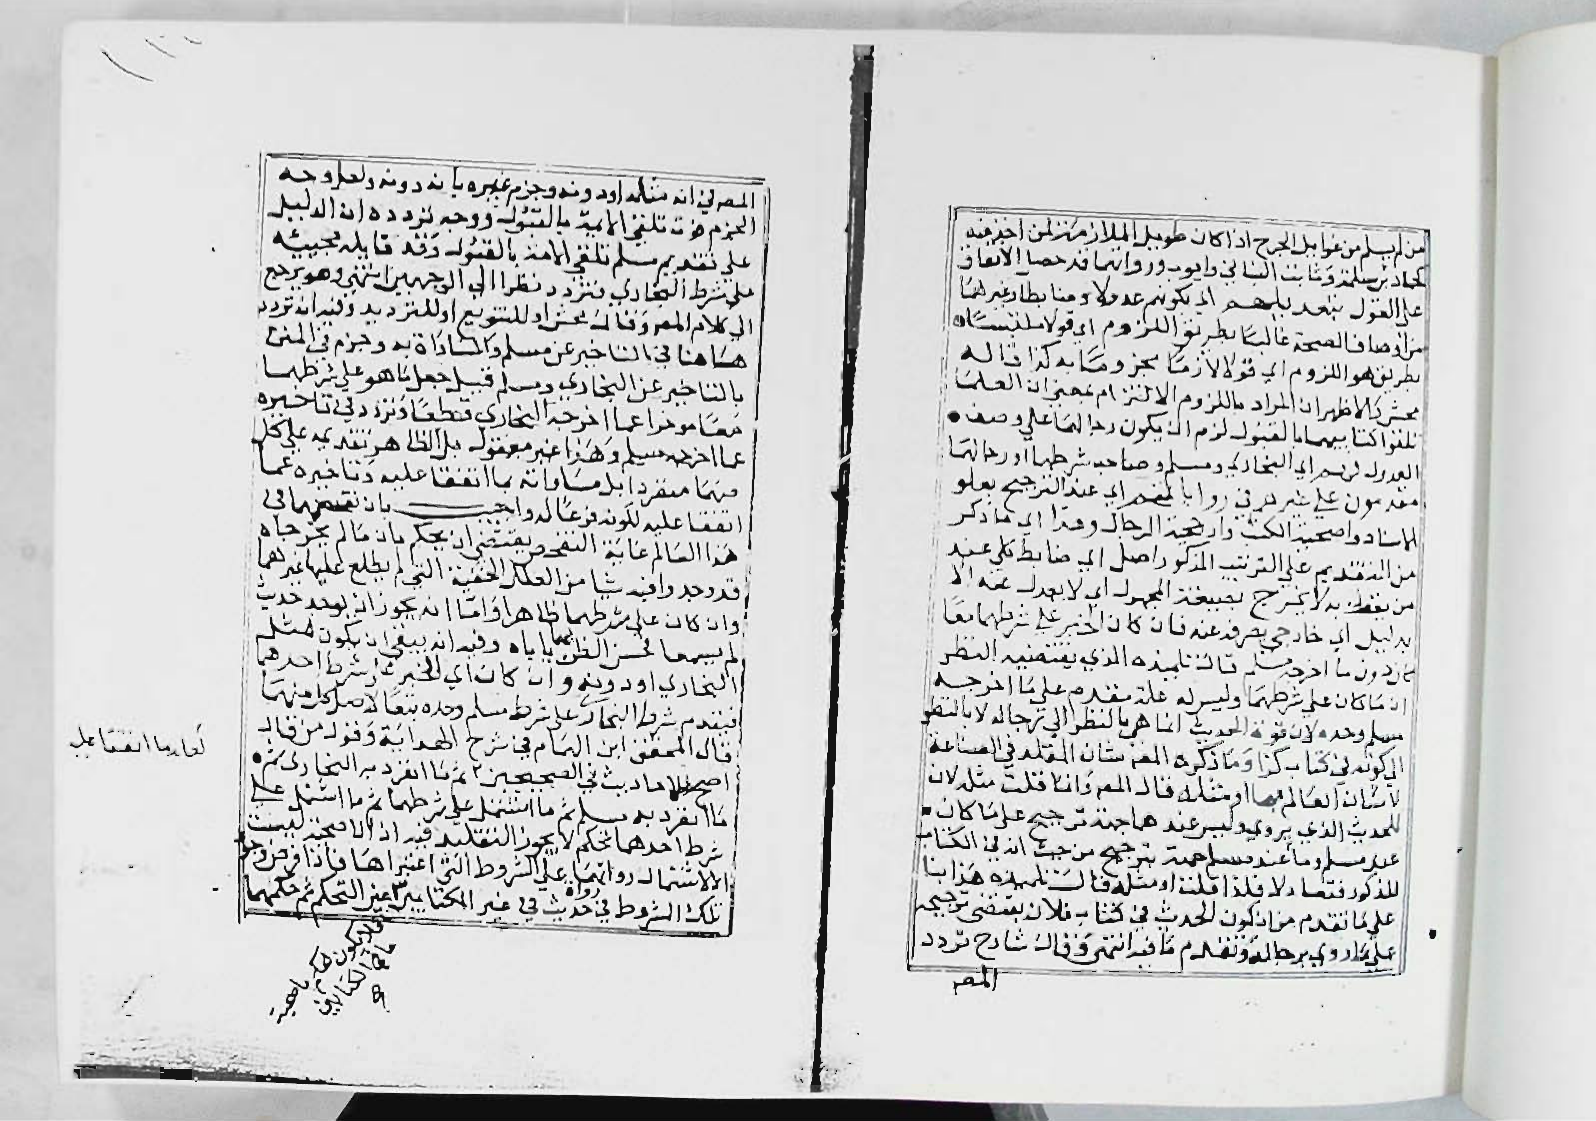 من لم يسلم من غوايل الجرح اذا كان طويل الملازمة لمن اخذ عنه
كحماد بن سلمة وثابت البناني وايوب ورواتهما قد حصل الاتفاق
على القول بتعديلهم اي بكونهم عدولا وضابطا وغيرهما
من اوصاف الصحة غالبا بطريق اللزوم اي قولا ملتبسا
بطريق هو اللزوم اي قولا لازما مجزوما به كذا قاله
محش والاظهر ان المراد باللزوم الالتزام بمعنى ان العلما
تلقوا كتابيهما بالقبول لزم ان يكون رجالهما على وصف
العدول فهم اي البخاري ومسلم وصاحب شرطهما او رجالهما
مقدمون على غيرهم في رواياتهم اي عند الترجيح بعلو
الاسناد واصحية الكتب وارجحية الرجال وهذا اي ما ذكر
من التقديم على الترتيب المذكور اصل اي ضابط كلي عند
من يعتد به لا يخرج بصيغة المجهول اي لا يعدل عنه الا
بدليل اي خارجي يصرفه عنه فان كان الخبر على شرطهما معا
كان دون ما اخرجه مسلم قال تلميذه الذي يقتضيه النظر
ان ما كان على شرطهما وليس له علة مقدم على ما اخرجه
مسلم وحده لان قوة الحديث انما هي بالنظر الى رجاله لا بالنظر
الى كونه في كتاب كذا وما ذكره المص شان المقلد في الصناعة
لا شان العالم بها او مثله قال المص وانما قلت مثله لان
للحديث الذي يروى وليس عندهما جهة ترجيح على ما كان
عند مسلم وما عند مسلم جهة ترجيح من حيث انه في الكتاب
المذكور فتعادلا فلذا قلت او مثله قال تلميذه هذا بنا
على ما تقدم من ان كون الحديث في كتاب فلان يقتضي ترجيحه
على ما روي برجاله وتقدم ما فيه انتهى وقال شارح تردد
المص
المص في انه مثله او دونه وجزم غيره بانه دونه ولعل وجه
الجزم قوت تلقي الامة بالقبول ووجه تردده ان الدليل
على تقديم مسلم تلقي الامة بالقبول وقد قابله مجيئه
على شرط البخاري فتردد نظرا الى الوجهين انتهى وهو يرجع
الى كلام المص وقال محش او للتنويع او للترديد وفيه انه تردد
هاهنا في التاخير عن مسلم والمساواة به وجزم في المتن
بالتاخير عن البخاري ومسلم قبيل جعل ما هو على شرطهما
معا موخرا عما اخرجه البخاري قطعا وتردد في تاخيره
عما اخرجه مسلم وهذا غير معقول بل الظاهر تقديمه على كل
منهما منفردا بل مساواته بما اتفقا عليه وتاخيره عما
اتفقا عليه لكونه فرعا له واجيب بان تفحصهما في
هذا العالم غاية التفحص يقتضي ان يحكم بان مالم يخرجاه
قد وجدوا فيه شيا من العلل الخفية التي لم يطلع عليها غيرهما
وان كان على شرطهما ظاهرا واما انه يجوز ان يوجد حديث
لم يسمعا فحسن الظن بهما ياباه وفيه انه يبقى ان يكون مثل
البخاري او دونه وان كان اي الخبر على شرط احدهما
فيقدم شرط البخاري على شرط مسلم وحده تبعا لاصل كل منهما
قال المحقق ابن الهمام في شرح الهداية وقول من قال
اصح الاحاديث في الصحيحين ثم ما انفرد به البخاري ثم
ما انفرد به مسلم ثم ما اشتمل على شرطهما ثم ما اشتمل على
شرط احدهما تحكم لا يجوز التقليد فيه اذ الاصحية ليست
الا لاشتمال رواتهما على الشروط التي اعتبراها فاذا فرض وجود
تلك الشروط في رواة حديث في غير الكتابين غير التحكم ثم حكمهما
فلا يكون الحكم باصحية
ما في الكتابين